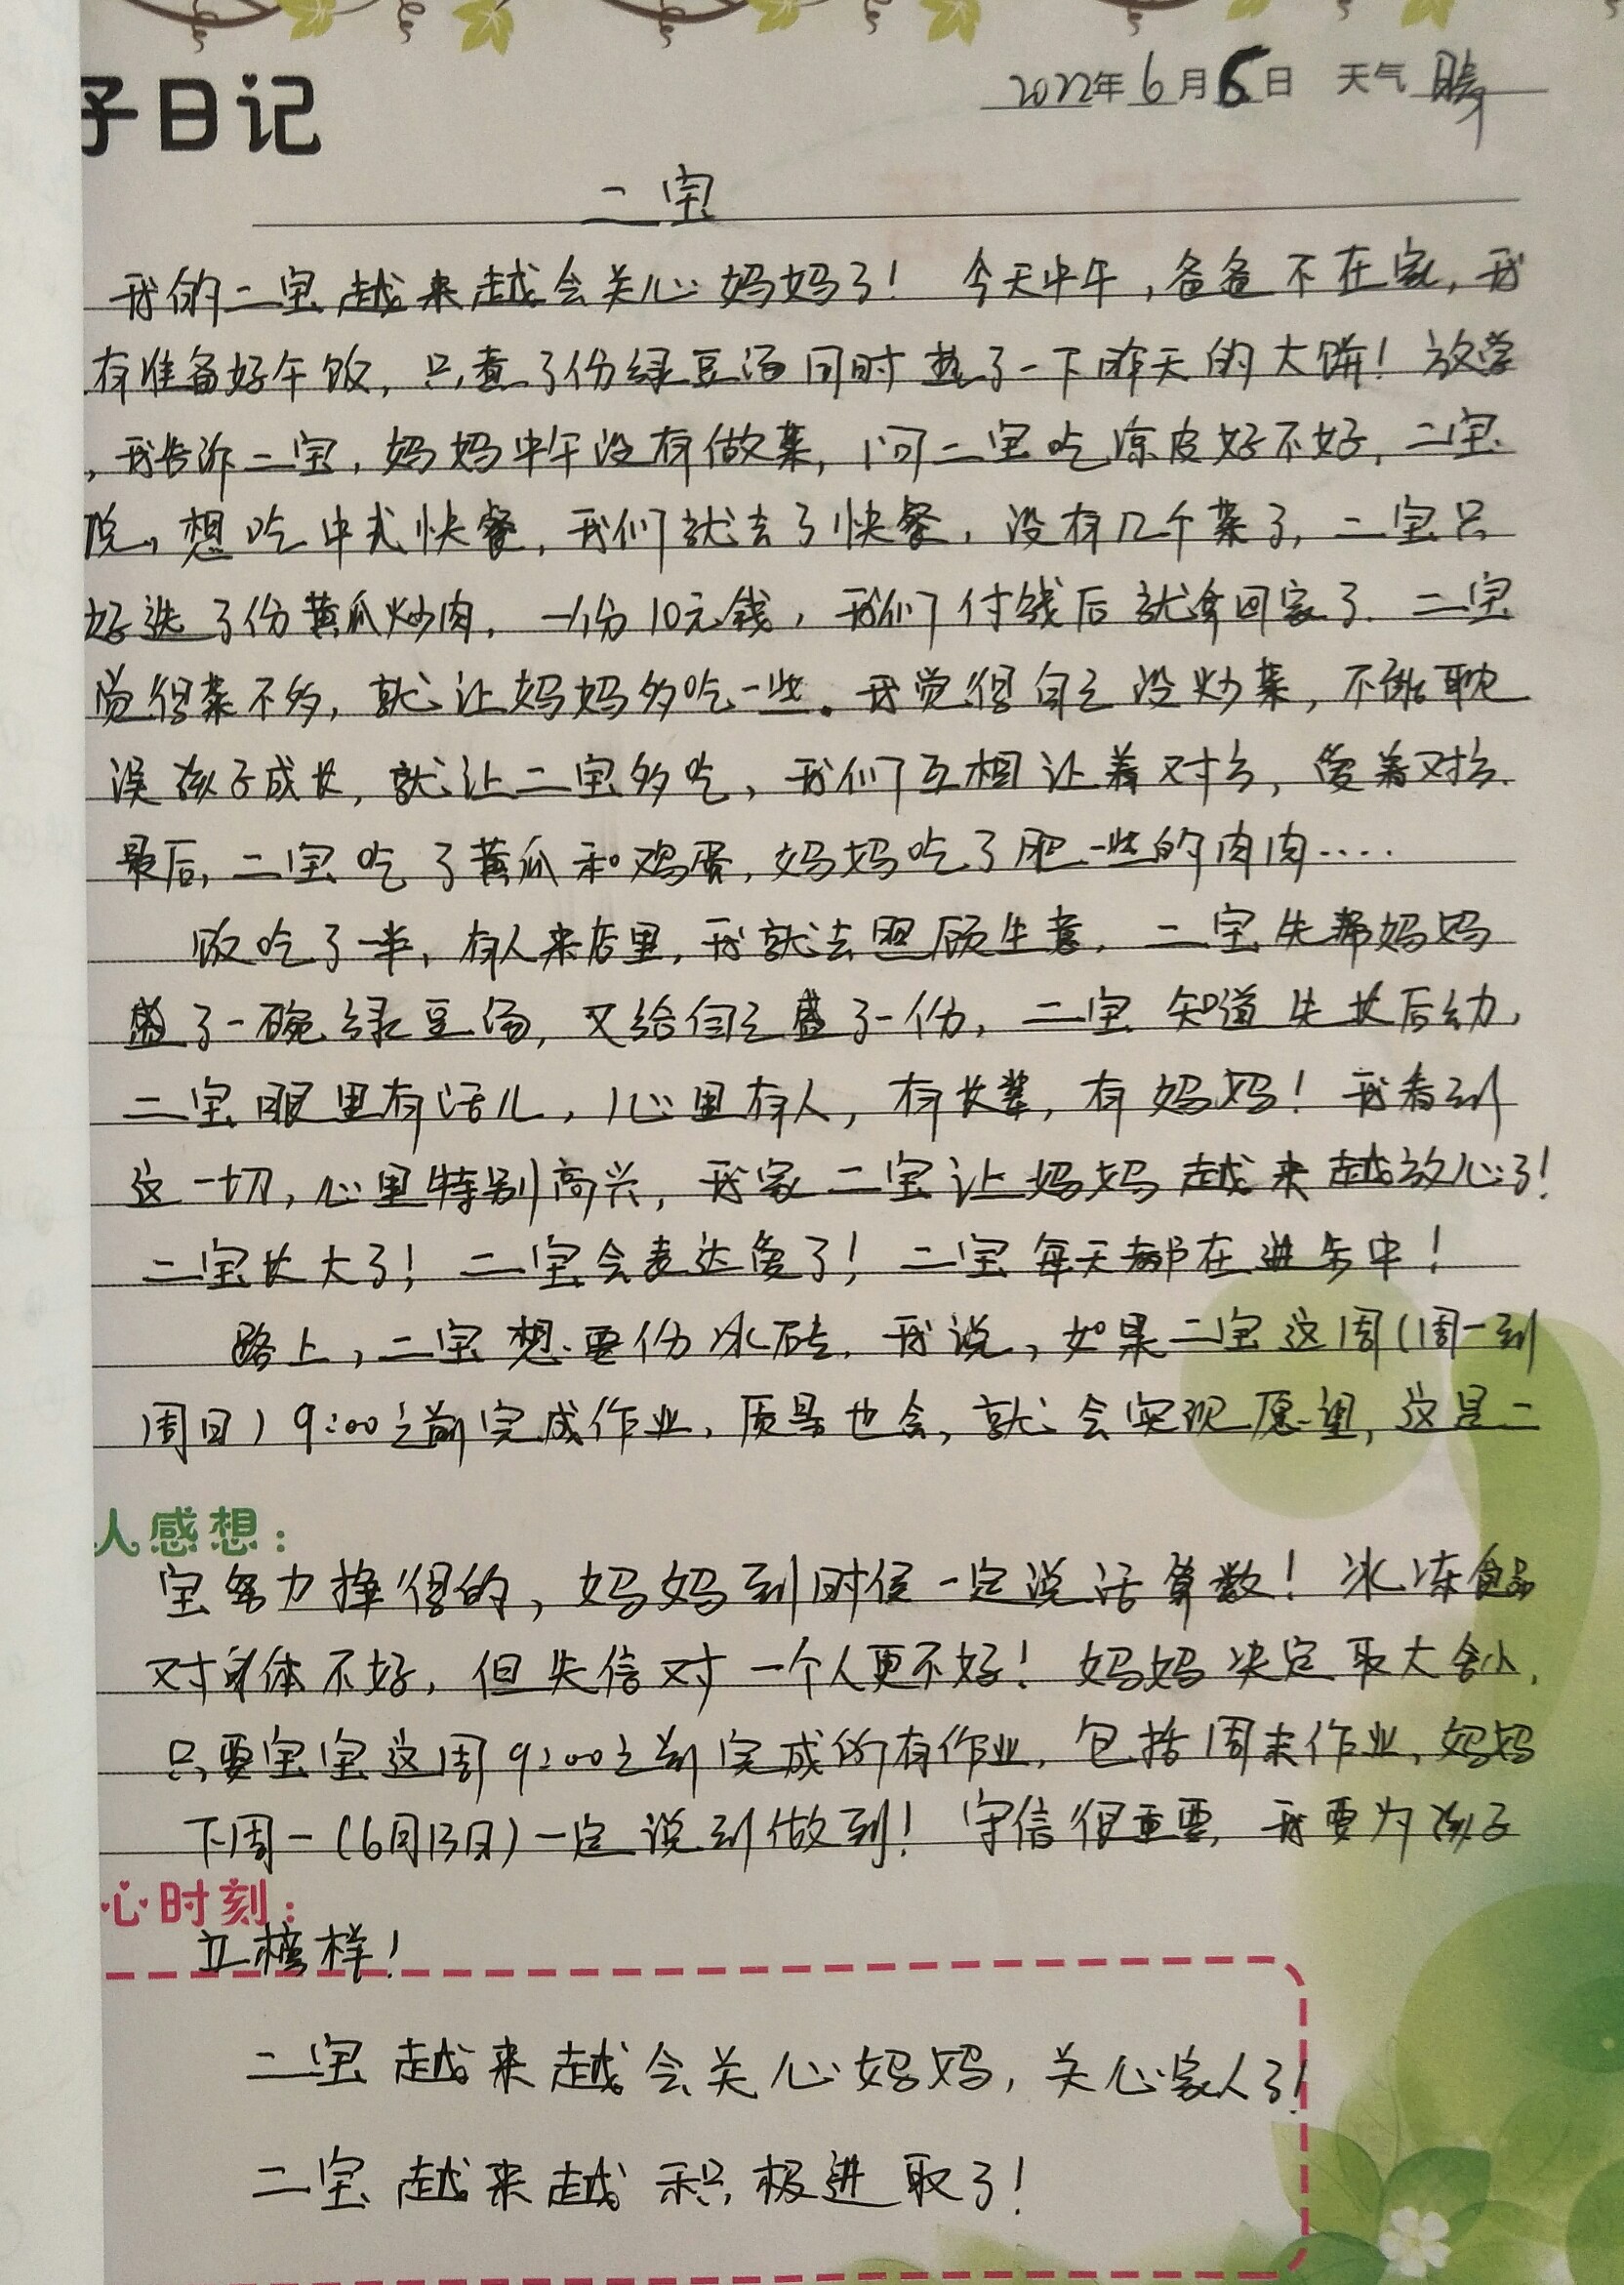 子日记
2022年6月6日 天气 晴
二宝
我的二宝越来越会关心妈妈了！今天中午，爸爸不在家，我
有准备好午饭，只煮了份绿豆汤同时热了一下昨天的大饼！放学
，我告诉二宝，妈妈中午没有做菜，问二宝吃凉皮好不好，二宝
说，想吃中式快餐，我们就去了快餐，没有几个菜了，二宝只
好选了份黄瓜炒肉，一份10元钱，我们付钱后就拿回家了．二宝
觉得菜不多，就让妈妈多吃一些。我觉得自己没炒菜，不能耽
误孩子成长，就让二宝多吃，我们互相让着对方，爱着对方．
最后，二宝吃了黄瓜和鸡蛋，妈妈吃了肥一些的肉肉……
饭吃了一半，有人来店里，我就去照顾生意，二宝先帮妈妈
盛了一碗绿豆汤，又给自己盛了一份，二宝知道先长后幼，
二宝眼里有活儿，心里有人，有长辈，有妈妈！我看到
这一切，心里特别高兴，我家二宝让妈妈越来越放心了！
二宝长大了！二宝会表达爱了！二宝每天都在进步中！
路上，二宝想要份冰砖．我说，如果二宝这周（周一到
周日）9:00之前完成作业，质量也会，就会实现愿望，这是二
人感想：
宝努力挣得的，妈妈到时候一定说话算数！冰冻食品
对身体不好，但失信对一个人更不好！妈妈决定取大舍小，
只要宝宝这周9:00之前完成所有作业，包括周末作业，妈妈
下周一（6月13日）一定说到做到！守信很重要，我要为孩子
心时刻：
立榜样！
二宝越来越会关心妈妈，关心家人了！
二宝越来越积极进取了！